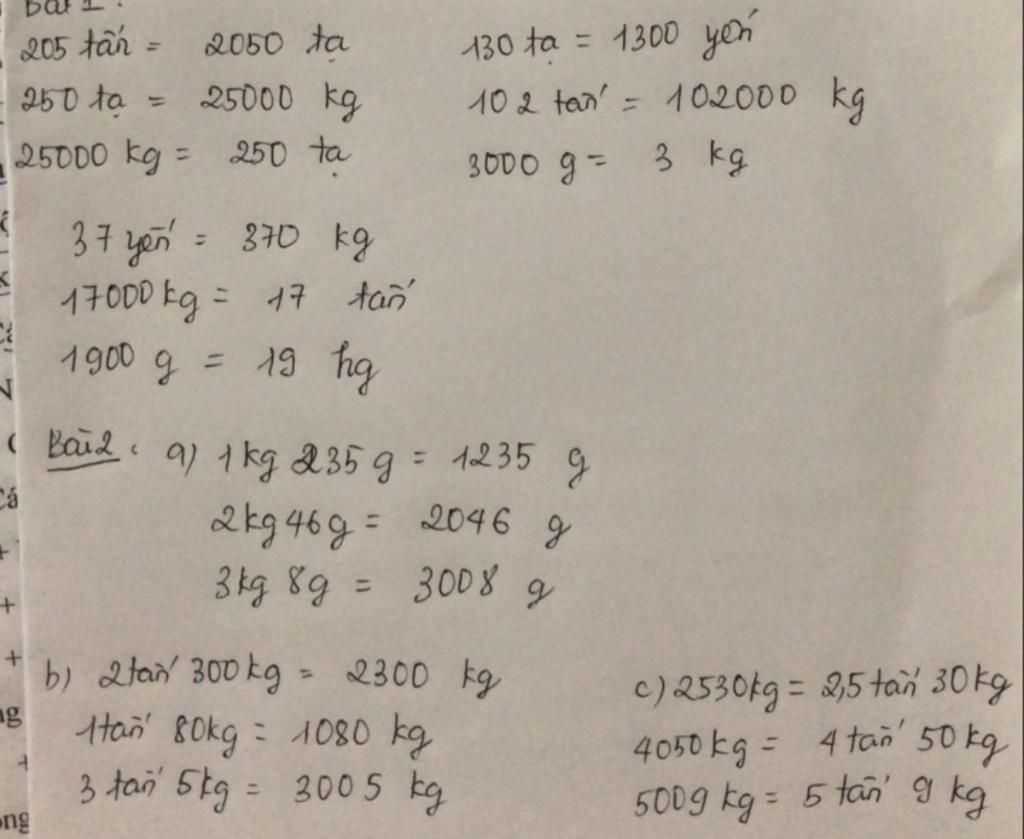 Bài 1:
205 tấn = 2050 tạ 130 tạ = 1300 yến
250 tạ = 25000 kg 102 tấn = 102000 kg
25000 kg = 250 tạ 3000 g = 3 kg
37 yến = 370 kg
17000 kg = 17 tấn
1900 g = 19 hg
Bài 2: a) 1kg 235g = 1235 g
2kg 46g = 2046 g
3kg 8g = 3008 g
b) 2 tấn 300 kg = 2300 kg c) 2530kg = 2,5 tấn 30kg
1 tấn 80kg = 1080 kg 4050 kg = 4 tấn 50 kg
3 tấn 5kg = 3005 kg 5009 kg = 5 tấn 9 kg